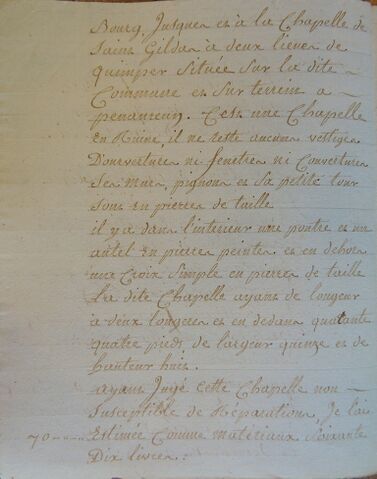 Bourg, Jusques et à la Chapelle de
Saint Gildas à deux lieues de
quimper située sur la dite
Commune et sur terrein a
penanrun. Cest une Chapelle
en Ruine, il ne reste aucuns vestiges
D'ouvertures ni fenetres ni Couverture
Ses Murs, pignons et sa petite tour
sont en pierres de taille
il y a dans l'interieur une pontre et un
autel en pierre peinte et en dehors
une Croix simple en pierre de taille
La dite Chapelle ayant de longeur
à deux longeres et en dedans quatante
quatre pieds de largeur quinze et de
hauteur huit.
ayant Jugé Cette Chapelle non
Susceptible de Réparations, Je l'ai
70 Estimée Comme matériaux Soixante
Dix livres: